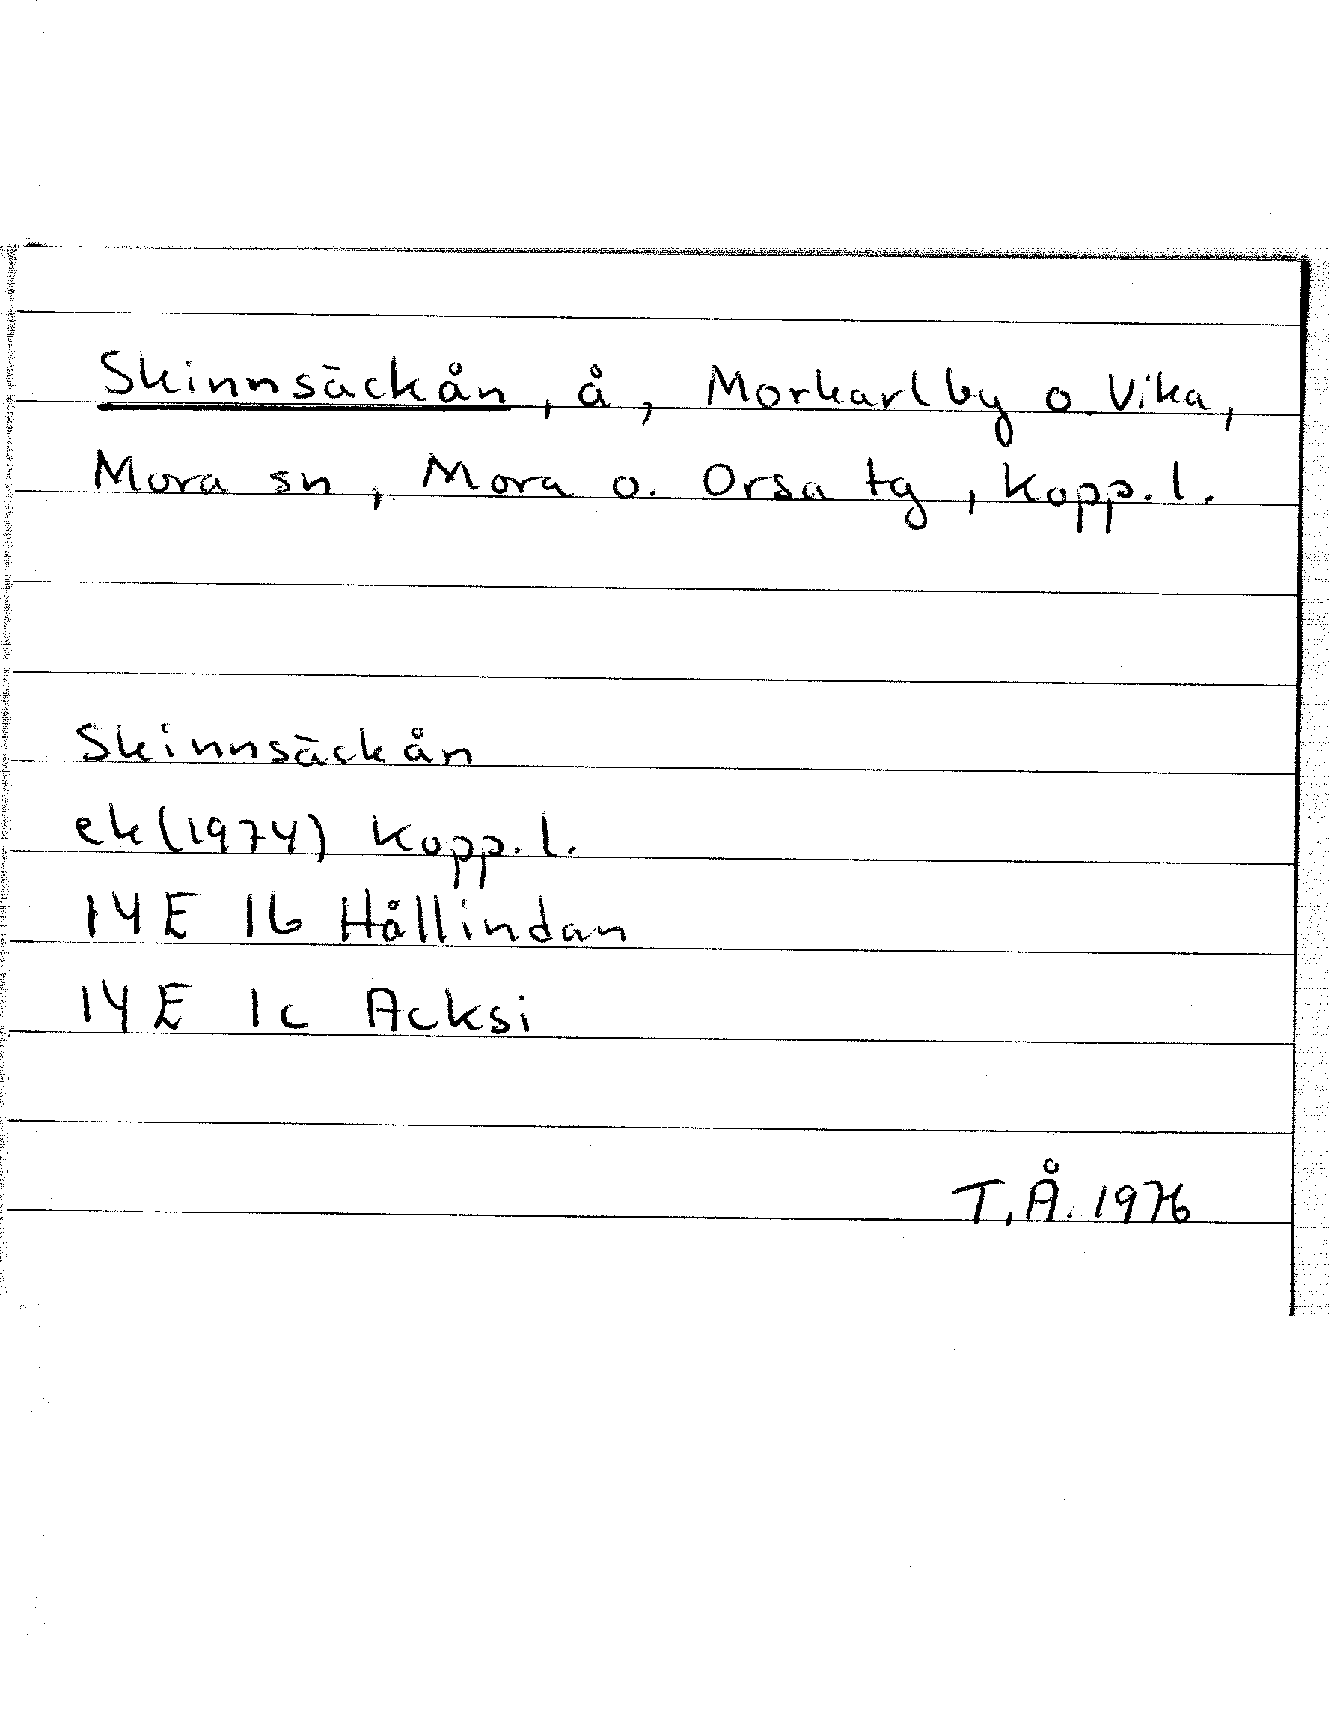 Skinnsäckån, å, Morkarlby o. Vika,
Mora sn, Mora o. Orsa tg, Kopp. l.
Skinnsäckån
ek (1974) Kopp. l.
14 E 1b Hållindan
14 E 1c Acksi
T.Å. 1976